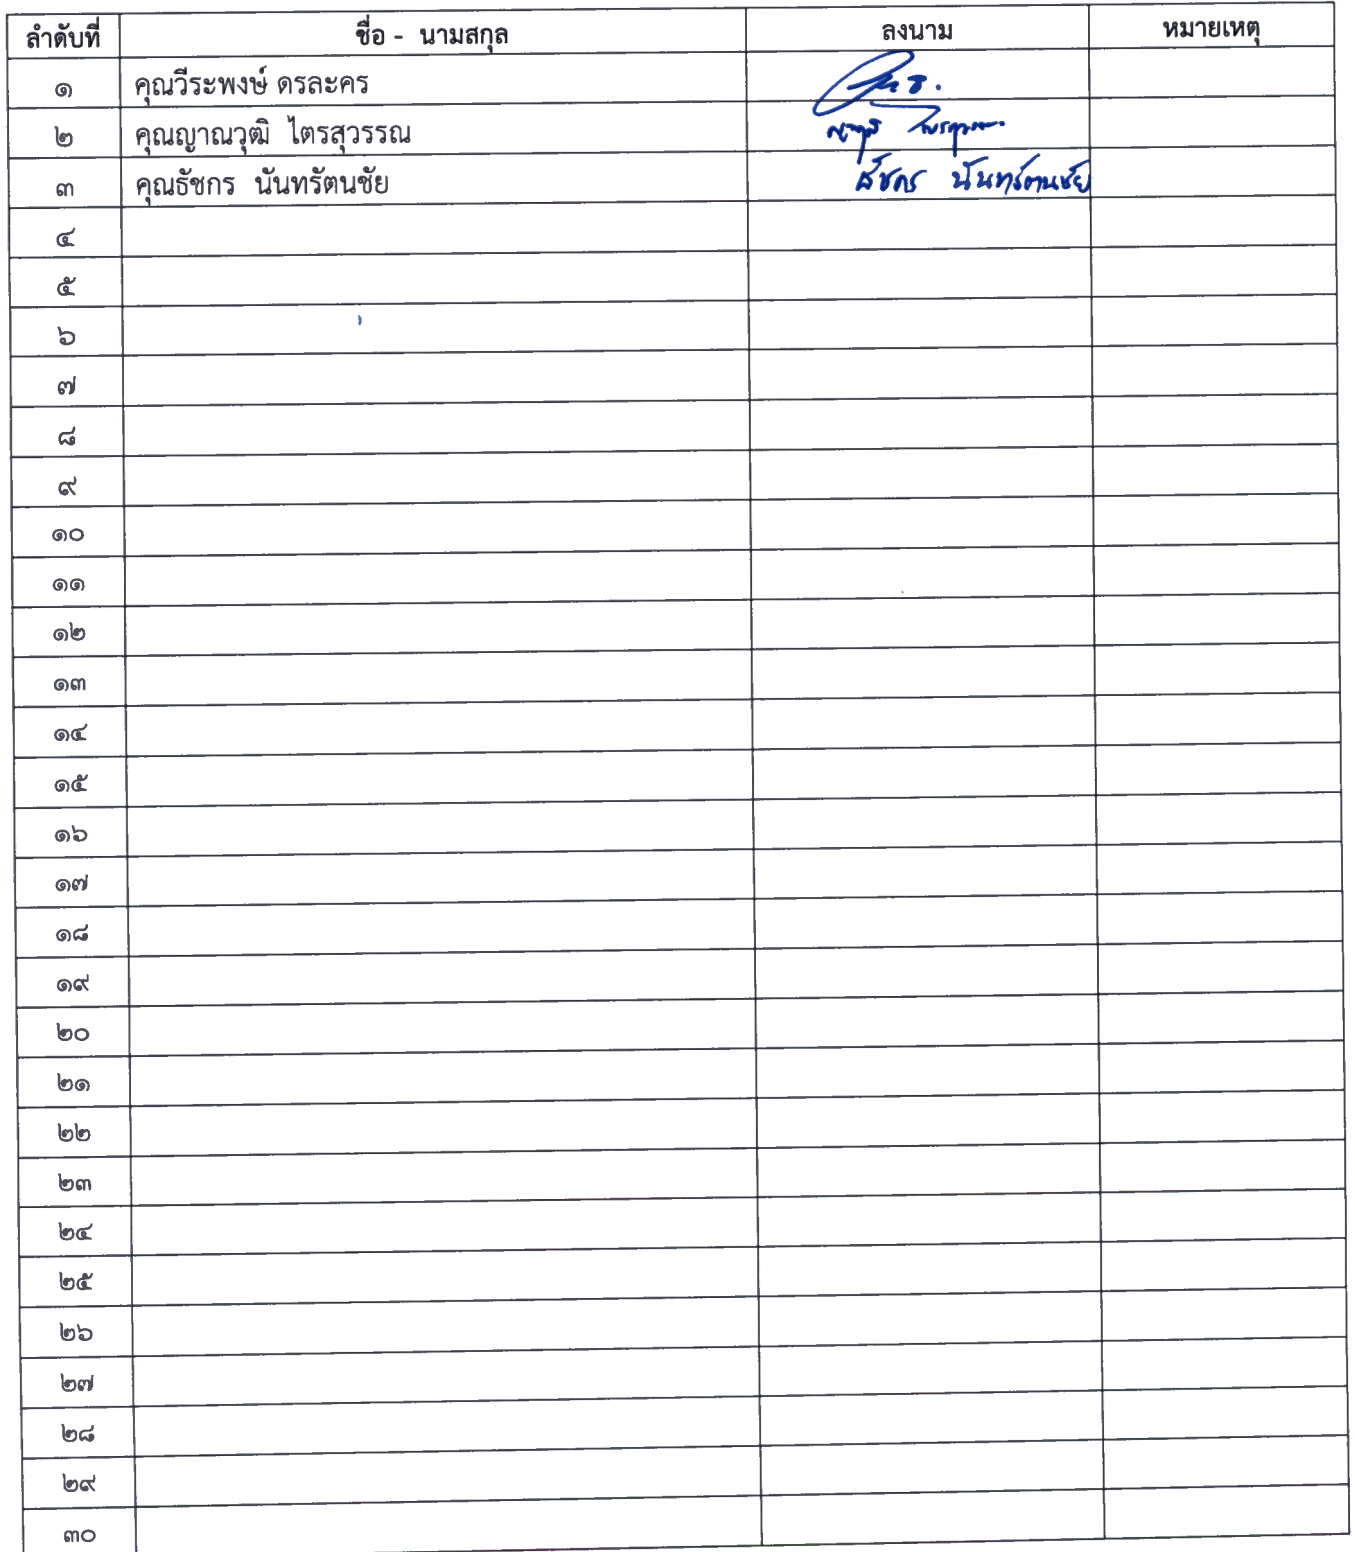 ลำดับที่ ชื่อ - นามสกุล ลงนาม หมายเหตุ
๑ คุณวีระพงษ์ ดรละคร
๒ คุณญาณวุฒิ ไตรสุวรรณ ญาณวุฒิ ไตรสุวรรณ
๓ คุณธัชกร นันทรัตนชัย ธัชกร นันทรัตนชัย
๔
๕
๖
๗
๘
๙
๑๐
๑๑
๑๒
๑๓
๑๔
๑๕
๑๖
๑๗
๑๘
๑๙
๒๐
๒๑
๒๒
๒๓
๒๔
๒๕
๒๖
๒๗
๒๘
๒๙
๓๐